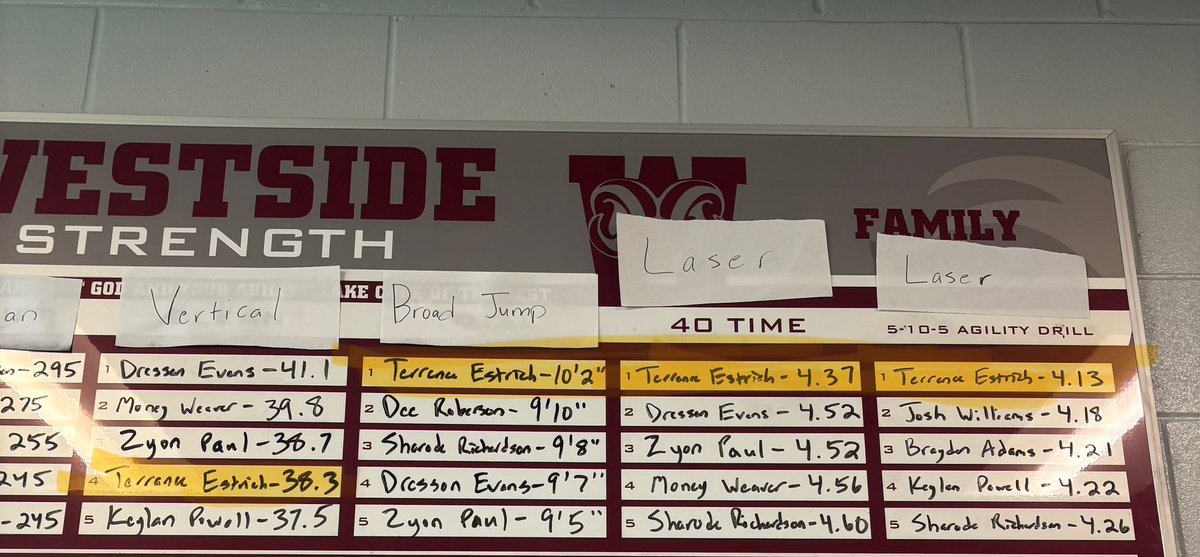 WESTSIDE
STRENGTH
W
FAMILY
an
-295
275
255
245
-245
Vertical
1 Dresson Evans - 41.1
2 Money Weaver - 39.8
3 Zyon Paul - 38.7
4 Terrance Estrich - 38.3
5 Keylan Powell - 37.5
Broad Jump
1 Terrance Estrich - 10'2"
2 Dee Roberson - 9'10"
3 Sharode Richardson - 9'8"
4 Dresson Evans - 9'7"
5 Zyon Paul - 9'5"
Laser
40 TIME
1 Terrance Estrich - 4.37
2 Dresson Evans - 4.52
3 Zyon Paul - 4.52
4 Money Weaver - 4.56
5 Sharode Richardson - 4.60
Laser
5-10-5 AGILITY DRILL
1 Terrance Estrich - 4.13
2 Josh Williams - 4.18
3 Braydon Adams - 4.21
4 Keylan Powell - 4.22
5 Sharode Richardson - 4.26